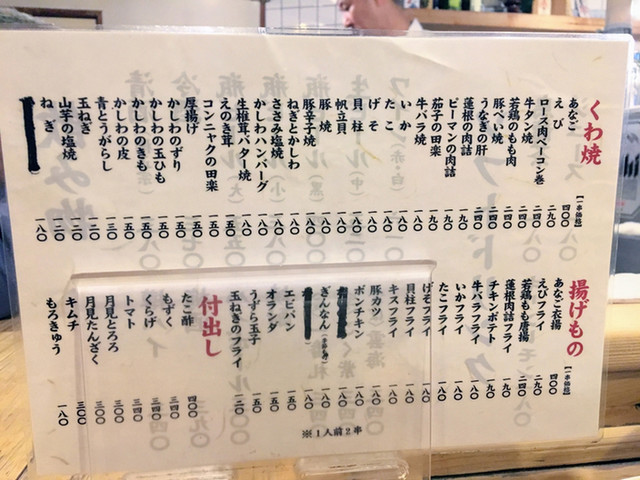 くわ焼
【一串価格】
あなご 四〇〇
えび 二九〇
ローズ肉ベーコン巻 二四〇
牛タン焼 二四〇
若鶏のもも肉 二四〇
豚へい焼 二四〇
うなぎの肝 二四〇
蓮根の肉詰 一九〇
ピーマンの肉詰 一九〇
茄子の田楽 一九〇
牛バラ焼 一八〇
いか 一八〇
たこ 一八〇
げそ 一八〇
貝柱 一八〇
帆立貝 一八〇
豚焼 一八〇
豚辛子焼 一八〇
ねぎとかしわ 一八〇
ささみ塩焼 一八〇
かしわハンバーグ 一八〇
生椎茸バター焼
えのき茸 一五〇
コンニャクの田楽 一五〇
厚揚げ 一五〇
かしわのずり 一五〇
かしわの玉ひも 一五〇
かしわのきも 一五〇
かしわの皮
青とうがらし 一二〇
玉ねぎ 一二〇
山芋の塩焼
ねぎ 一八〇
揚げもの
【一串価格】
あなご衣揚 四〇〇
えびフライ 二九〇
若鶏もも唐揚 二四〇
蓮根肉詰フライ 一九〇
チキンポテト 一九〇
牛バラフライ 一八〇
いかフライ 一八〇
たこフライ 一八〇
げそフライ 一八〇
貝柱フライ 一八〇
キスフライ 一八〇
豚カツ 一八〇
ポンチキン 一八〇
ぎんなん 一八〇
エビパン 一八〇
オランダ 一五〇
うずら玉子 一五〇
玉ねぎのフライ 一二〇
※1人前2串
付出し
たこ酢 四〇〇
もずく 三四〇
くらげ 三四〇
トマト 三四〇
月見とろろ 三〇〇
月見たんざく 三〇〇
キムチ 三〇〇
もろきゅう 一八〇